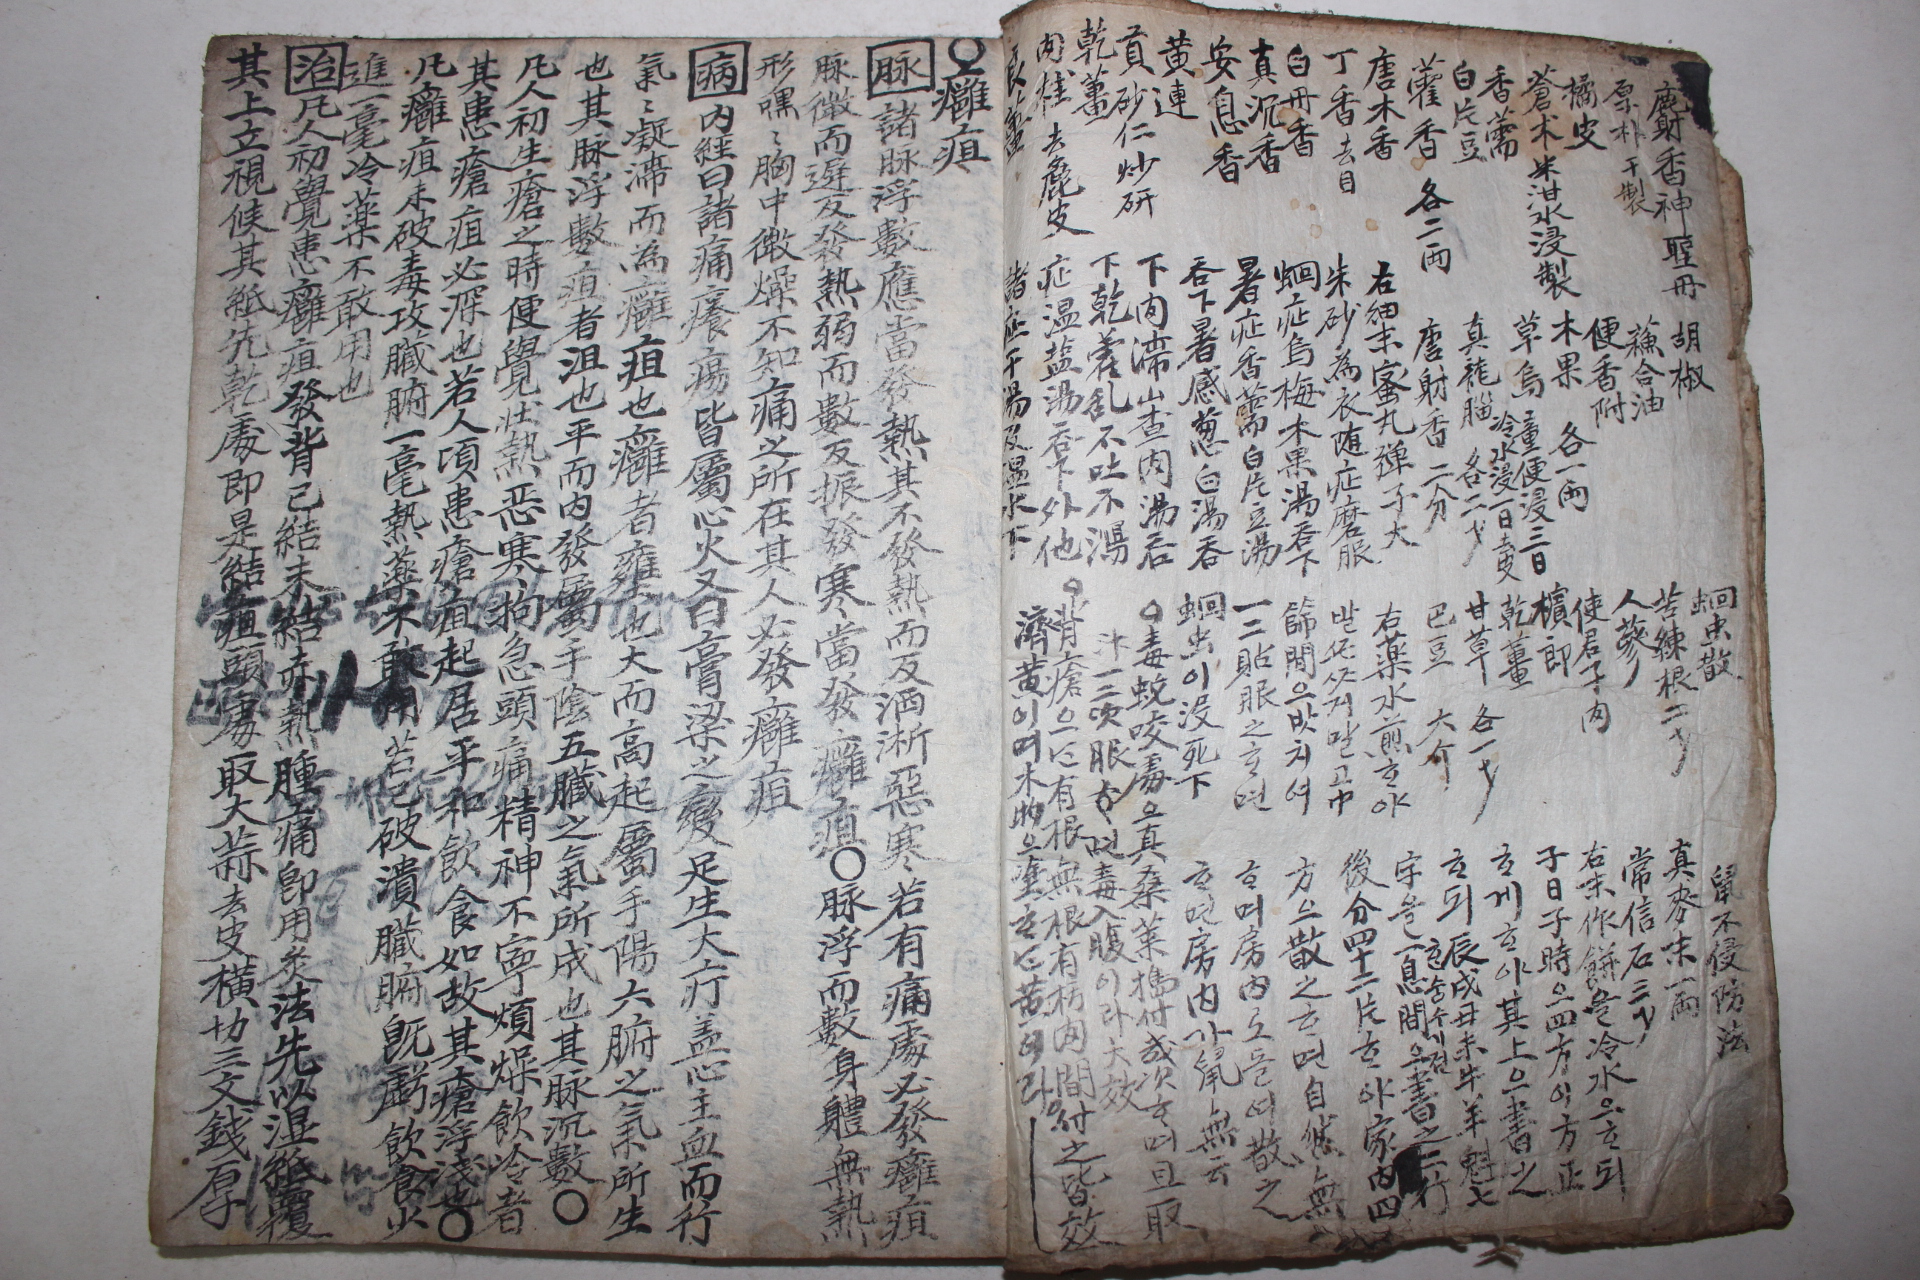 麝香神聖丹
厚朴 干製
橘皮
蒼朮 米泔水浸製
香薷
白片豆
藿香 各二兩
唐木香
丁香 去目
白丹香
真沉香
安息香
黄連
貢砂仁 炒研
乾薑
肉桂 去麁皮
良薑
胡椒
蘓合油
便香附 童便浸三日
木果 各一兩
草烏 冷水浸一日去皮
真龍腦 各二戔
唐射香 二分
右細末蜜丸彈子大
朱砂為衣随症磨服
蛔症烏梅木果湯吞下
暑症香薷白片豆湯
吞下暑感葱白湯吞
下肉滯山查肉湯吞
下乾霍乱不吐不瀉
症温盐湯吞下外他
諸症干湯及温水下
蛔虫散
苦練根 二戔
人蔘
使君子肉
檳郎
乾薑
甘草 各一戔
巴豆 大介
右薬水煎ᄒᆞ야
篩間으로
一二貼服之ᄒᆞ면
蛔虫이没死下
○毒蛇咬處으真桑葉搗付或次ᄒᆞ며且取
汁一二次服ᄒᆞ면毒入腹이라도大效
○背瘡으는有根無根有枋肉間付之皆效
濟黄이며木物으로塗ᄒᆞ는黄이라
鼠不侵防法
真麥末 一兩
常信石 三戔
右味作餠을冷水으ᄒᆞ되
子日子時으四方이方正
ᄒᆞ게ᄒᆞ야其上으書之
ᄒᆞ되辰戌丑未牛羊魁七
字을一息間으書之二行
後分四十二片ᄒᆞ야家内四
方으散之ᄒᆞ면自然無
ᄒᆞ며房内도을여散之
ᄒᆞ면房内가鼠無云
○癰疽
脉 諸脉浮數應當發熱其不發熱而反洒淅惡寒若有痛處必發癰疽
脉微而遲反發熱弱而數反振發寒當發癰疽○脉浮而數身體無熱
形嘿〻胸中微燥不知痛之所在其人必發癰疽
病 内經曰諸痛癢瘍皆屬心火又曰膏梁之變足生大疔盖心主血而行
氣〻凝滯而為癰疽也癰者壅也大而高起屬手陽六腑之氣所生
也其脉浮數疽者沮也平而内發屬手陰五臟之氣所成也其脉沉數○
凡人初生瘡之時便覺壯熱恶寒拘急頭痛精神不寧煩燥飲冷者
其患瘡疽必深也若人項患瘡疽起居平和飲食如故其瘡浮淺也○
凡癰疽未破毒攻臟腑一毫熱薬不敢用若已破潰臟腑既虧飲食少
進一毫冷薬不敢用也
治 凡人初覺患癰疽發背已結未結赤熱腫痛卽用灸法先以湿紙覆
其上立視候其紙先乾處即是結疽頭處取大蒜去皮橫切三文錢厚